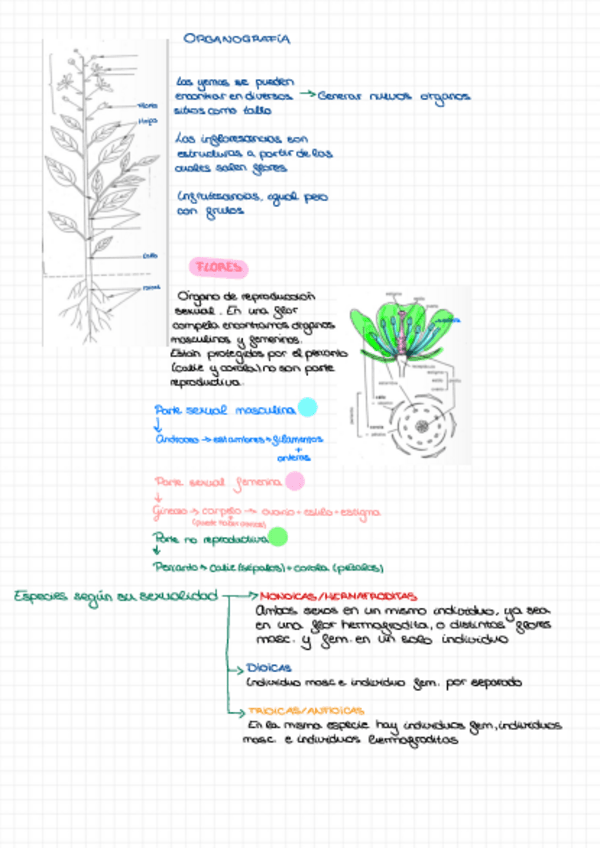 ORGANOGRAFÍA
Las yemas se pueden
encontrar en diversos → Generar nuevos organos
sitios como tallo
Las inflorescencias son
estructuras a partir de las
cuales salen flores
Infrutescencias, igual pero
con frutos
Hojas
tallo
FLORES
Organo de reproducción
sexual. En una flor
completa encontramos órganos
masculinos y femeninos.
Están protegidos por el perianto
(caliz y corola) no son parte
reproductiva.
Parte sexual masculina
↓
Androceo → estambres → filamentos
+
anteras
Parte sexual femenina
↓
Gineceo → carpelo → ovario + estilo + estigma
(puede haber varios)
Parte no reproductiva
↓
Perianto → caliz (sépalos) + corola (pétalos)
Especies según su sexualidad → MONOICAS/HERMAFRODITAS
Ambos sexos en un mismo individuo, ya sea
en una flor hermafrodita, o distintas flores
masc. y fem. en un solo individuo
DIOICAS
Individuo masc e individuo fem. por separado
TRIOICAS/ANTIOICAS
En la misma especie hay individuos fem, individuos
masc. e individuos hermafroditas